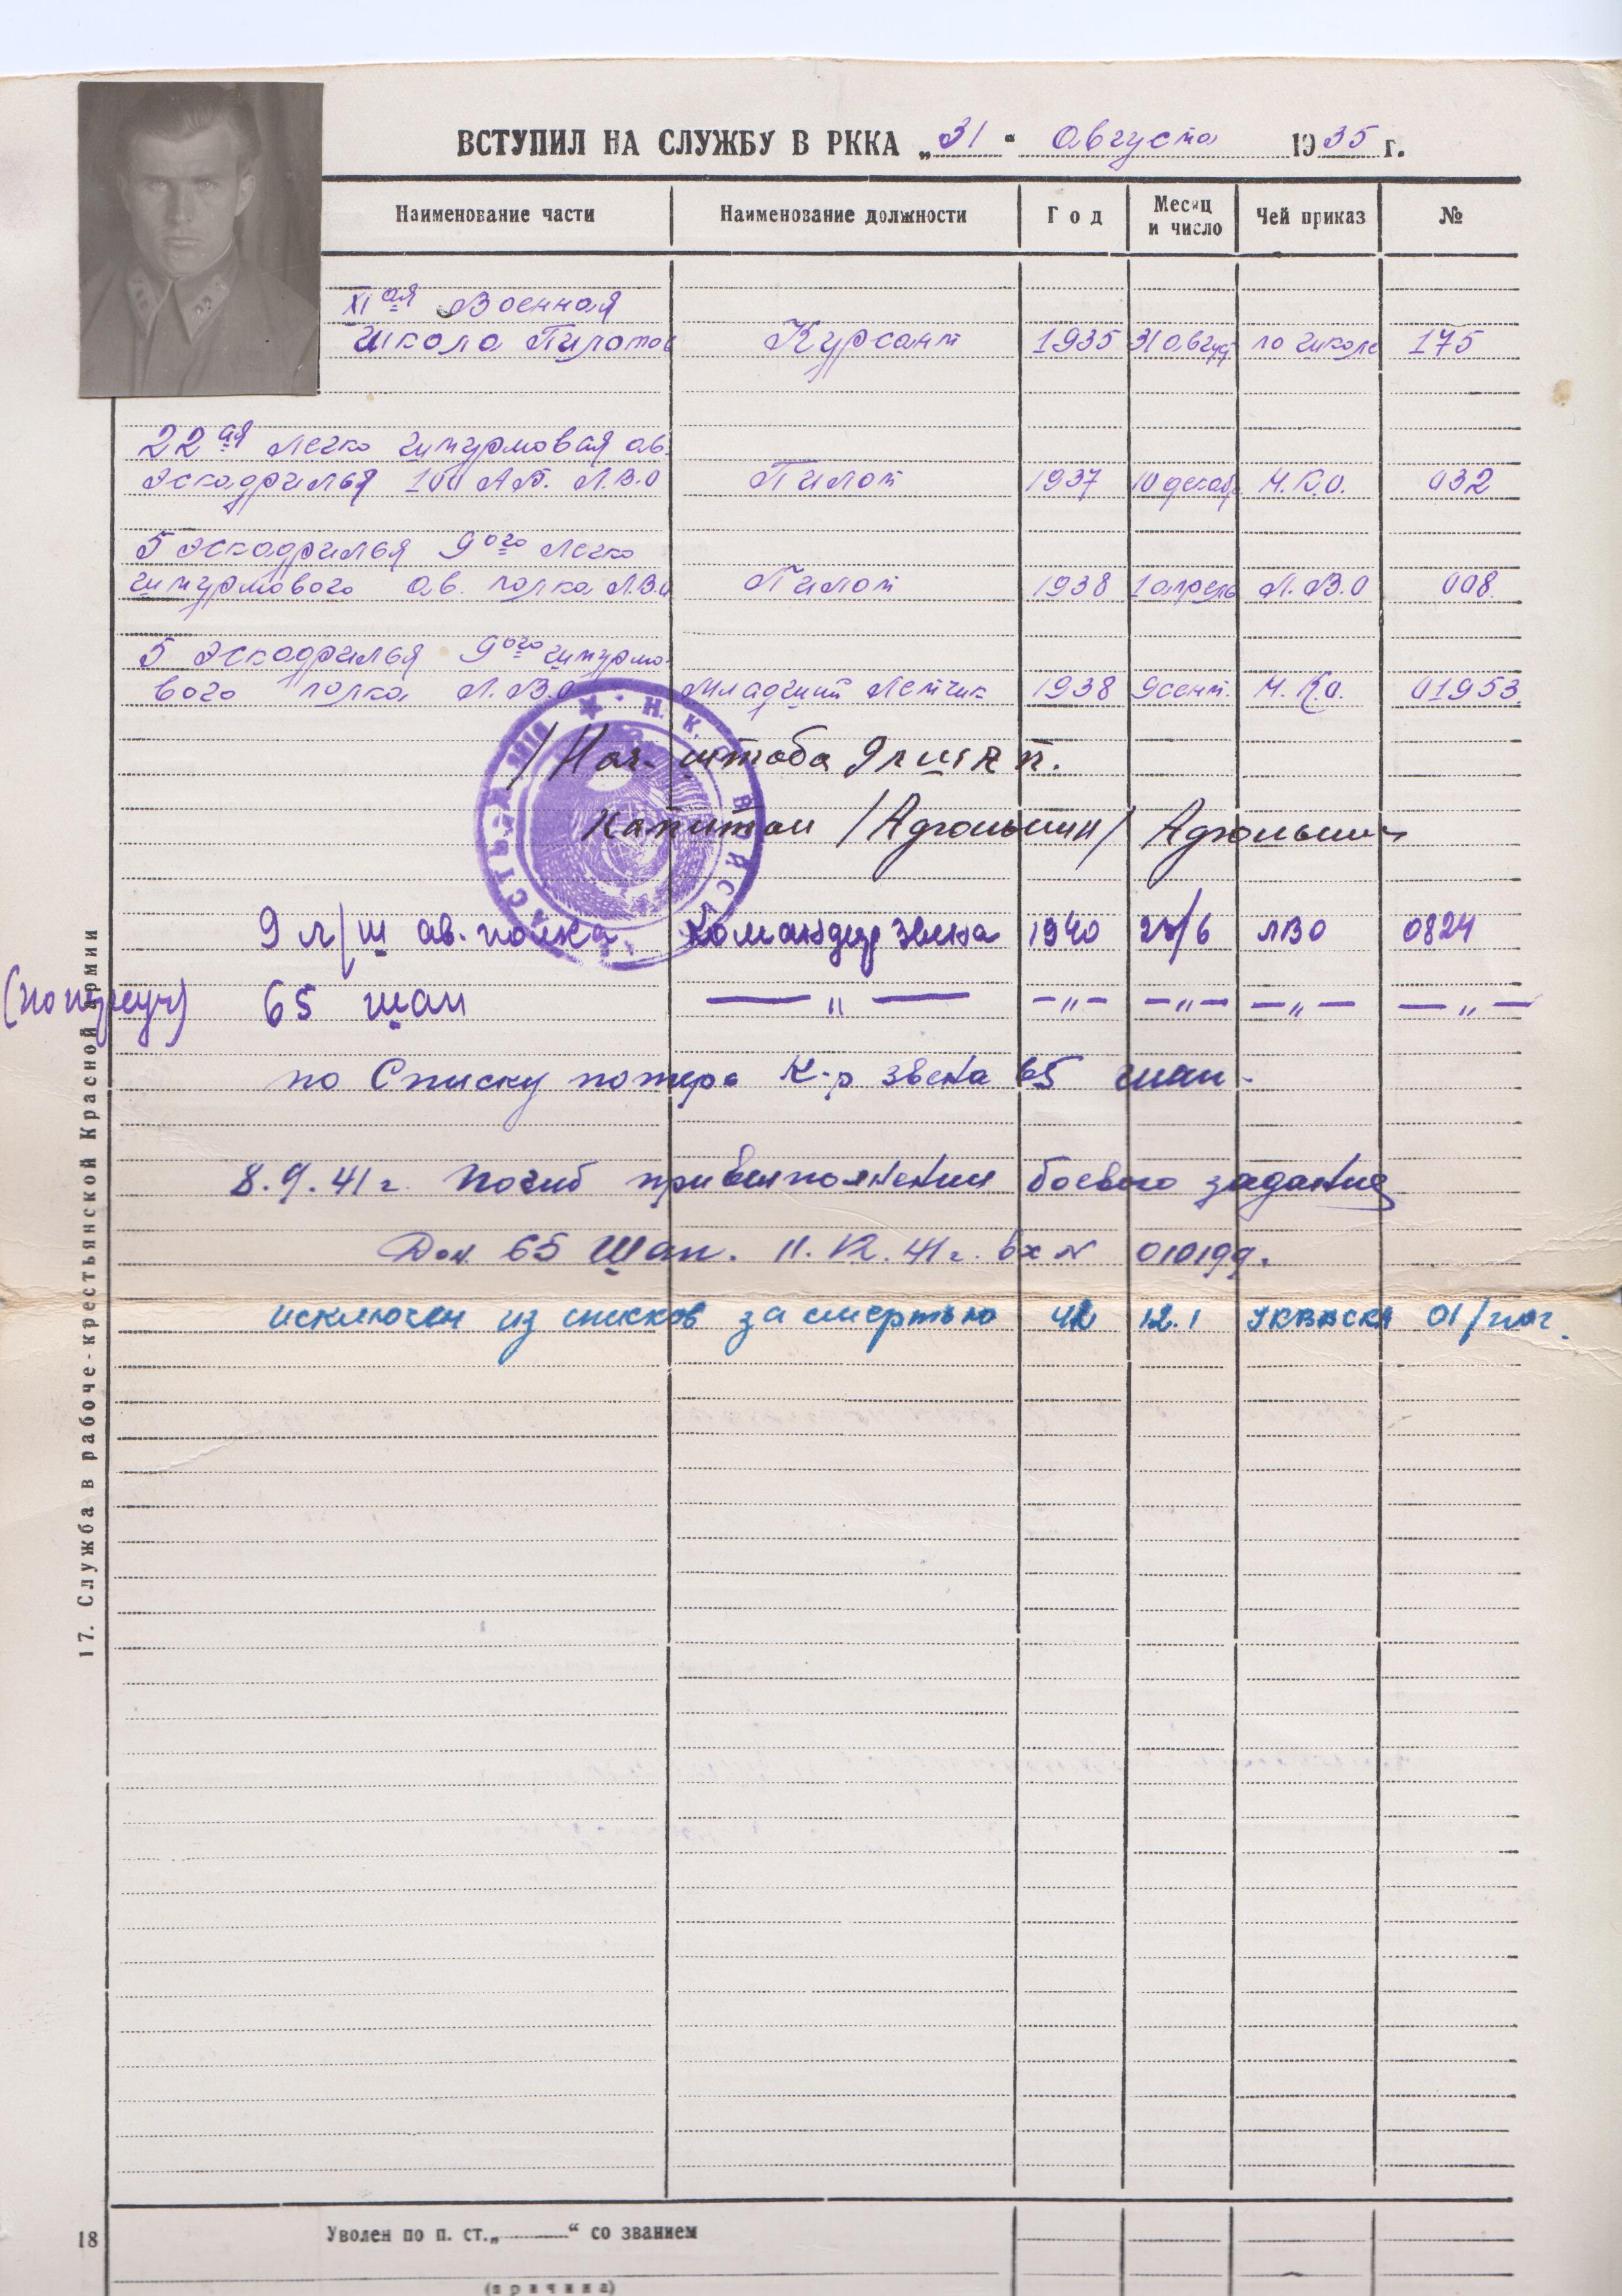 ВСТУПИЛ НА СЛУЖБУ В РККА „31“ Августа 1935 г.
Наименование части Наименование должности Год Месяц и число Чей приказ №
XIая Военная
Школа Пилотов Курсант 1935 31 август по школе 175
22ая легко штурмовая ав.
Эскадрилья АБ. Л.В.О Пилот 1937 10 декаб. Н.К.О. 032
5 Эскадрилья 9ого легко
штурмового ав. полка Л.В.О Пилот 1938 1 апрель Л.В.О 008.
5 Эскадрилья 9ого штурмо-
вого полка Л.В.О Младший Летчик 1938 9 сент. Н.К.О. 01953.
Нач. штаба 9
Капитан
9 л/ш ав. полка Командир звена 1940 /6 ЛВО 0824
65 шап — „ — — „ — — „ — — „ — — „ —
по Списку потерь К-р звена 65 шап.
8.9.41 г. Погиб при выполнении боевого задания
Дон. 65 Шап. 11.12.41 г. вх № 010199.
исключен из списков за смертью 42 12.1 01/
17. Служба в рабоче-крестьянской Красной Армии
18
Уволен по п. ст. „ “ со званием
(причина)